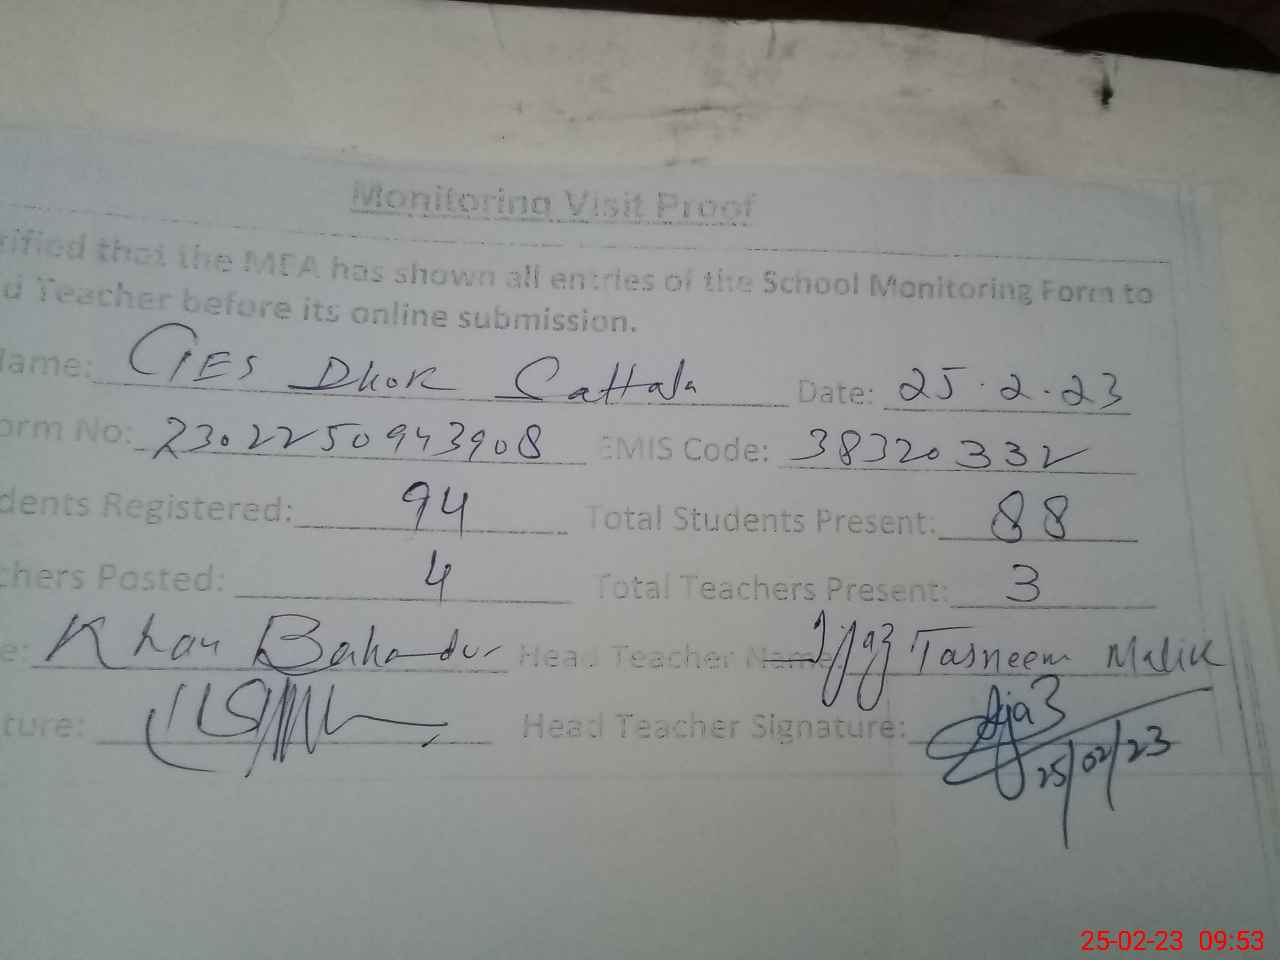 Monitoring Visit Proof
rified that the MEA has shown all entries of the School Monitoring Form to
d Teacher before its online submission.
Name: GES Dhok Sattala Date: 25.2.23
orm No: 2302250943908 EMIS Code: 38320332
dents Registered: 94 Total Students Present: 88
chers Posted: 4 Total Teachers Present: 3
e: Khan Bahadur Head Teacher Name: Ijaz Tasneem Malik
ture: Head Teacher Signature: Ijaz
25/02/23
25-02-23 09:53